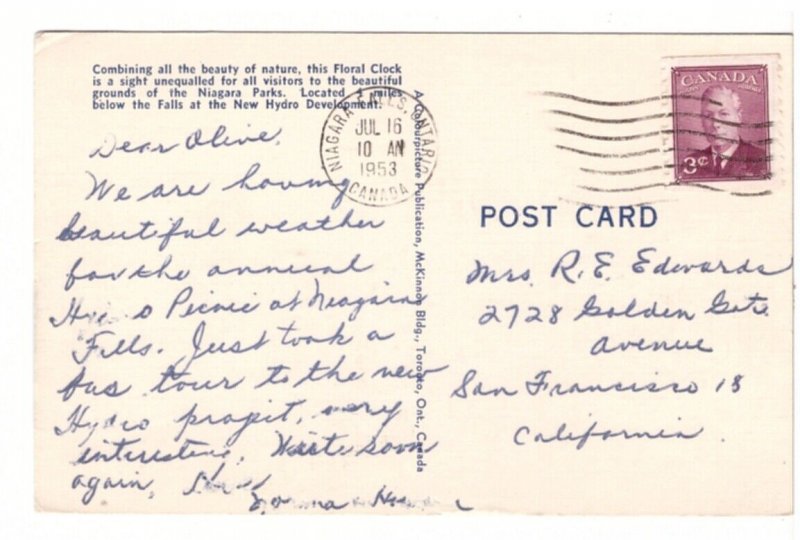 Combining all the beauty of nature, this Floral Clock
is a sight unequalled for all visitors to the beautiful
grounds of the Niagara Parks. Located miles
below the Falls at the New Hydro Development.
Dear Olive,
We are having
beautiful weather
for the annual
Picnic at Niagara
Falls. Just took a
bus tour to the new
Hydro projit, very
interesting. Write soon
again,
A Colourpicture Publication, McKinnon Bldg., Toronto, Ont., Canada
NIAGARA FALLS, ONTARIO
JUL 16
10 AM
1953
CANADA
CANADA
3¢
POST CARD
Mrs. R. E. Edwards
2728 Golden Gate
Avenue
San Francisco 18
California.